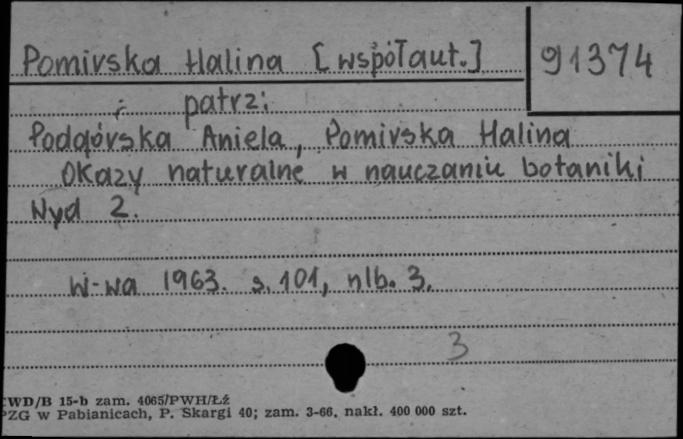 Pomirska Halina [współaut.] 91374
patrz:
Podgórska Aniela, Pomirska Halina
Okazy naturalne w nauczaniu botaniki
Wyd 2.
W-wa 1963. s. 101, nlb. 3.
3
CWD/B 15-b zam. 4065/PWH/Łź
PZG w Pabianicach, P. Skargi 40; zam. 3-66. nakł. 400 000 szt.